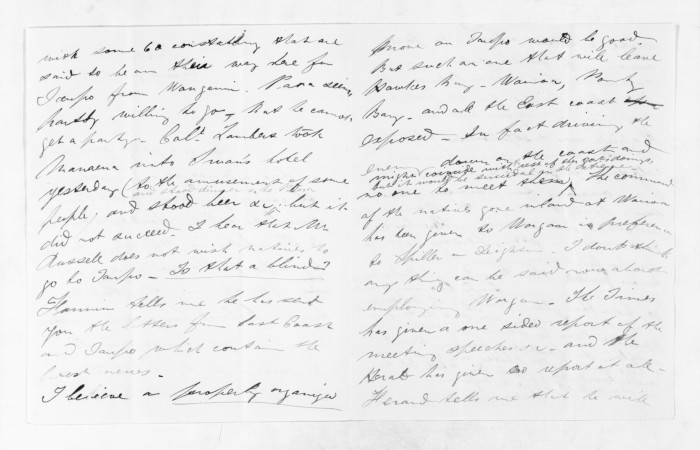 with some 60 constabulary that are
said to be on their way here for
Taupo from Wanganui. Paora seems
partly willing to go, but he cannot
get a party. Capt. Tanders took
Manaena into Swan's hotel
yesterday (to the amusement of some
people, and stood beer &c; but it
did not succeed. I hear that Mr
Russell does not wish natives to
go to Taupo - Is that a blind?
tells me he has sent
you the letters from East Coast
and Taupo which contain the
best news -
I believe a properly organized
move on Taupo would be good
But such an one that will leave
Hawkes Bay - Wairoa, Poverty
Bay - and all the East coast
exposed - In fact driving the
enemy down on the coast and
might with out of the
but it would be
no one to meet them. The command
of the natives gone inland at Wairoa
has been given to Worgan in preference
to Spiller or Deighton. I don't think
anything can be said now about
employing Worgan. The Times
has given a one sided report of the
meeting speeches &c - and the
Herald has given no report at all -
tells me that he will